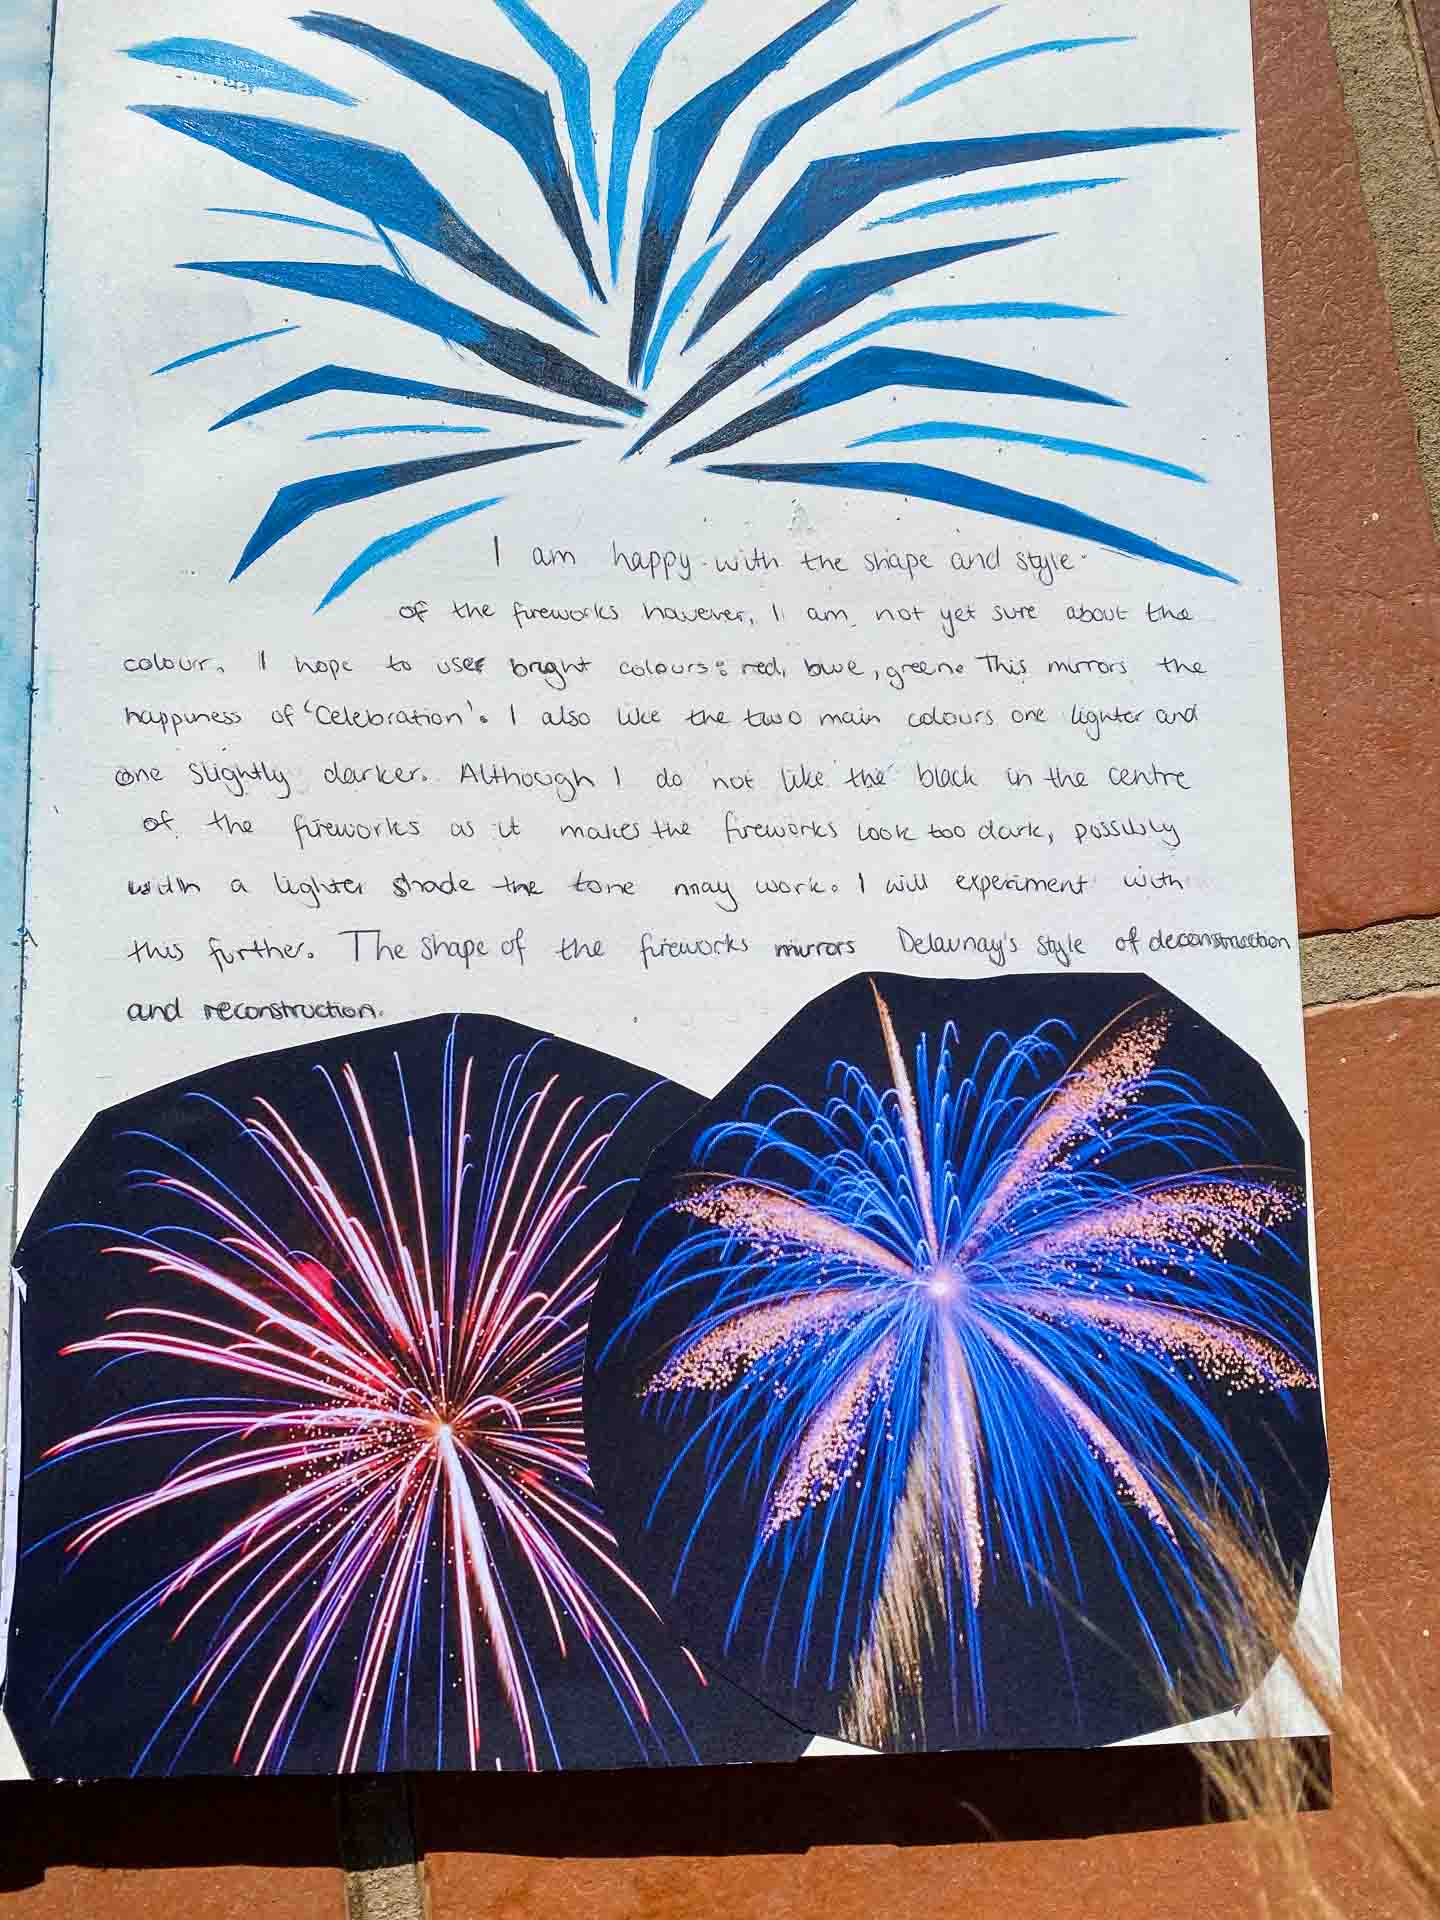 I am happy with the shape and style
of the fireworks however, I am not yet sure about the
colour. I hope to use bright colours: red, blue, green. This mirrors the
happiness of 'Celebration'. I also like the two main colours one lighter and
one slightly darker. Although I do not like the black in the centre
of the fireworks as it makes the fireworks look too dark, possibly
with a lighter shade the tone may work. I will experiment with
this further. The shape of the fireworks mirrors Delaunay's style of deconstruction
and reconstruction.